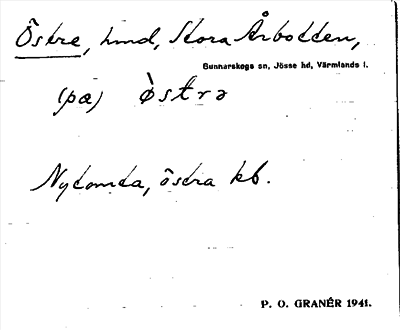 Östre, hmd, Stora Årbotten,
Gunnarskogs sn, Jösse hd, Värmlands l.
(pa) østrə
Nydomta, östra kb.
P. O. GRANÉR 1941.